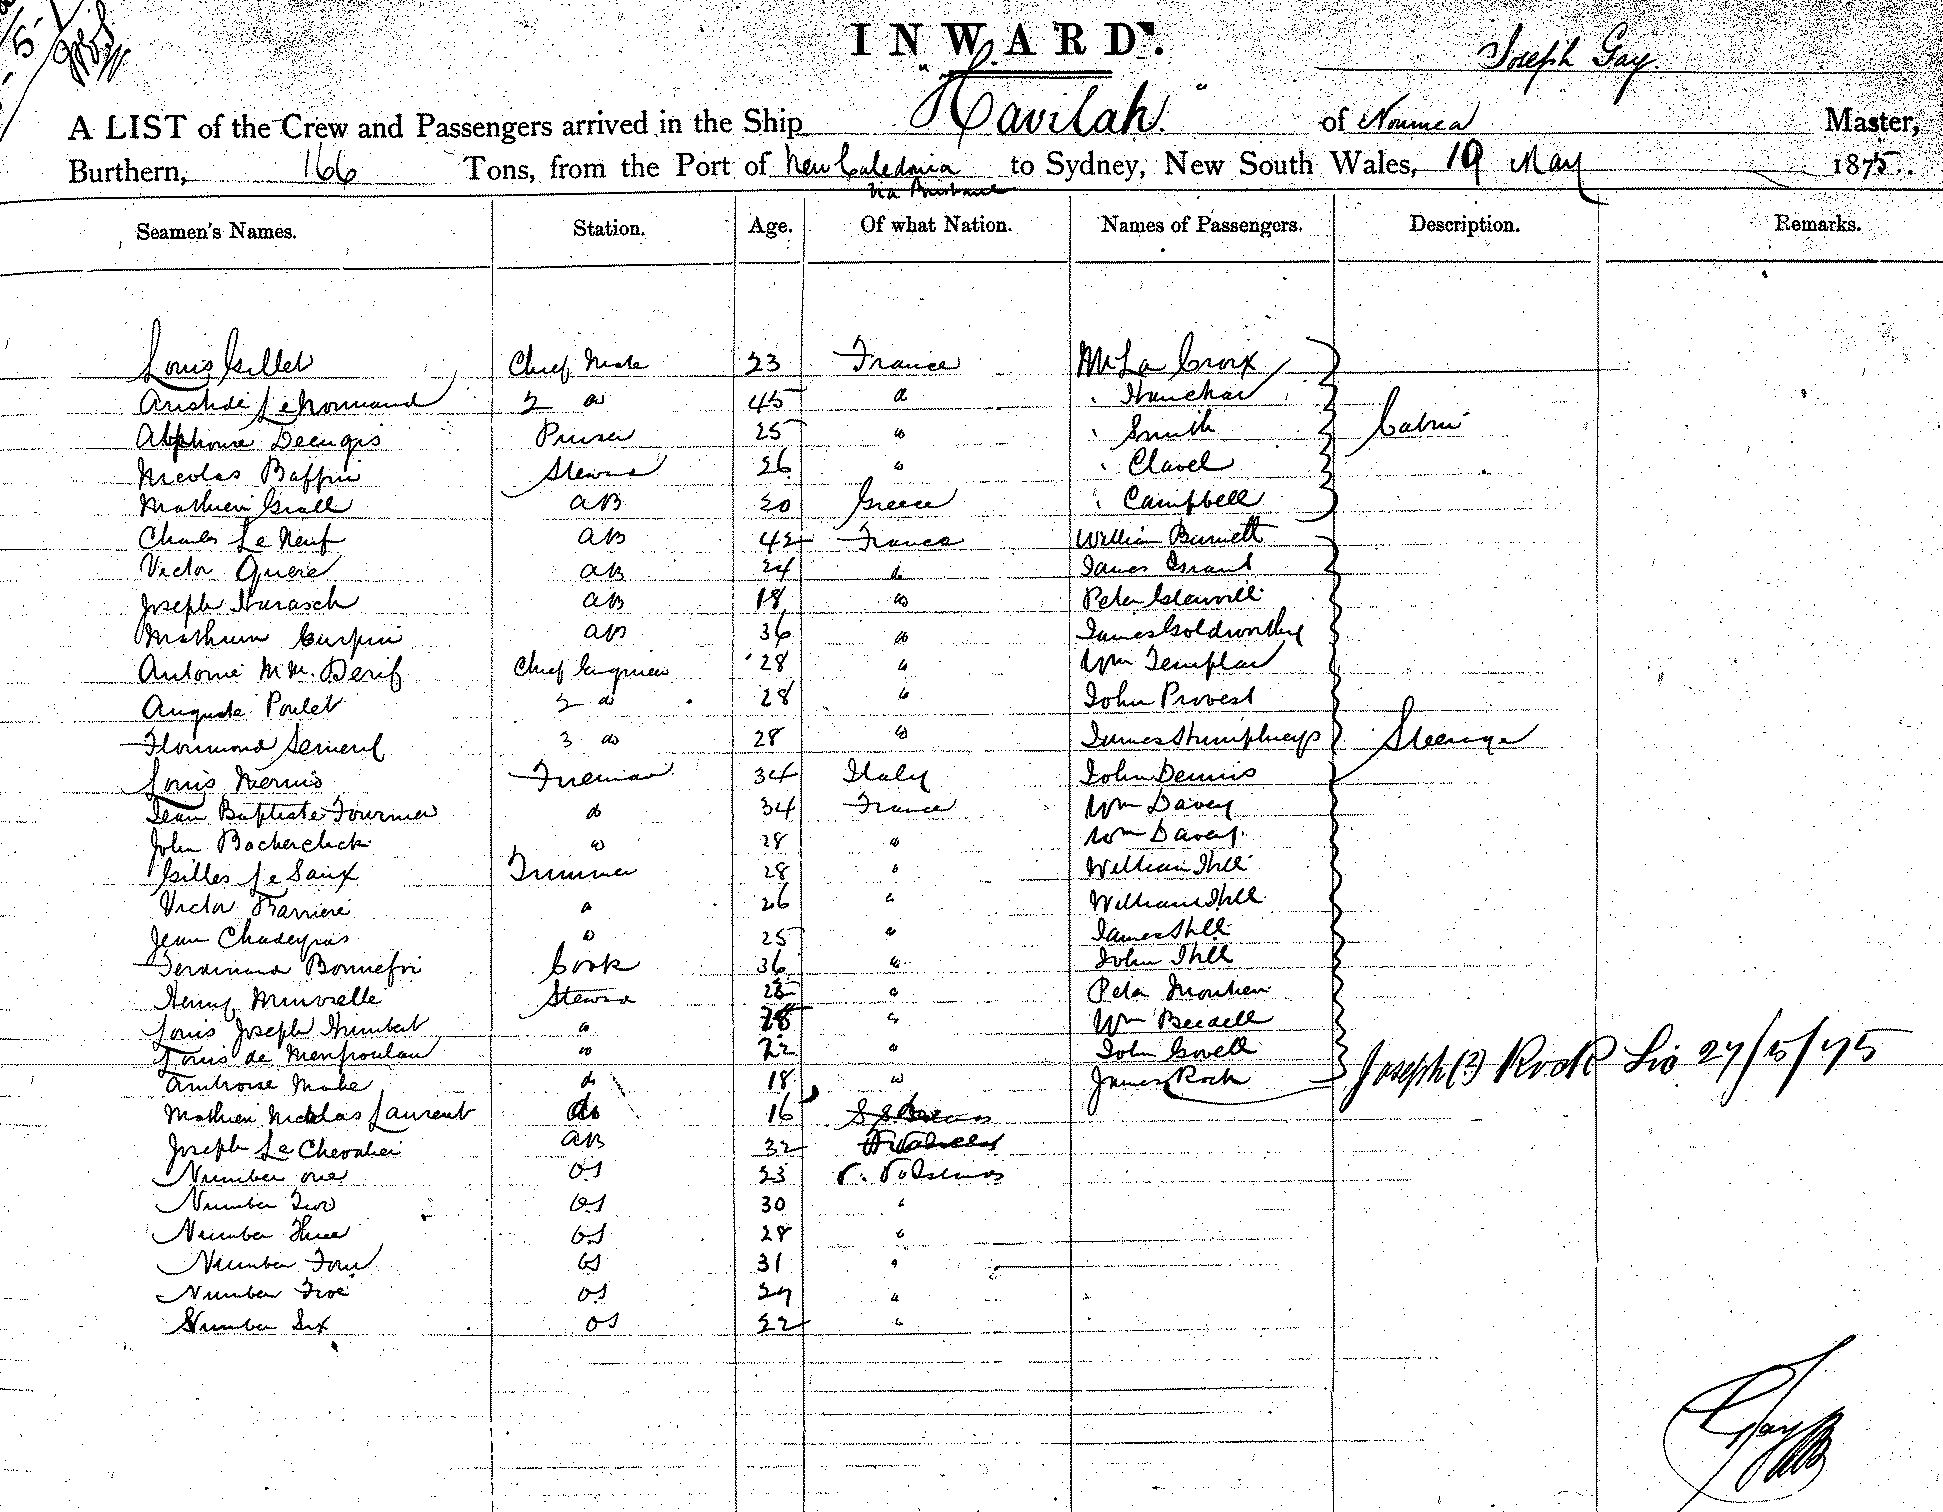 INWARD.
Joseph Gay.
A LIST of the Crew and Passengers arrived in the Ship "Havilah" of Noumea Master,
Burthern, 166 Tons, from the Port of New Caledonia to Sydney, New South Wales, 19 May 1875.
via Brisbane
Seamen's Names. Station. Age. Of what Nation. Names of Passengers. Description. Remarks.
Louis Gillet Chief Mate 23 France Mr La Croix
Aristide Le Normand 2 do 45 do " Hanchar
Alphonse Decugis Purser 25 do " Smith Cabin
Nicolas Baffin Steward 26 do " Clavel
Mathieu Grall AB 20 Greece " Campbell
Charles Le Neuf AB 42 France William Burnett
Victor Quere AB 24 do James Grant
Joseph AB 18 do Peter
AB 36 do James Goldworthy
Antoine M.M. Chief Engineer 28 do Wm Templar
Auguste Poulet 2 do 28 do John Provest
3 do 28 do James Humphreys Steerage
Louis Fireman 34 Italy John Dennis
Jean Baptiste Fournier do 34 France Wm Davey
John do 28 do Wm Davey
Gilles Le Saux Trimmer 28 do William Hill
Victor Barriere do 26 do William Hill
Jean Chadeyras do 25 do James Hill
Ferdinand Bonnefoi Cook 36 do John Hill
Henry Minoselle Steward 25 do Peter
Louis Joseph Humbert do 28 do Wm Beedell
Louis de do 22 do John Govell
Ambroise Mahe do 18 do James Rock Joseph (?) Rock Lio 27/5/75
Mathieu Nicklas Laurent do 16
Joseph Le Chevalier AB 32
Number one OS 23
Number Two OS 30 "
Number Three OS 28 "
Number Four OS 31 "
Number Five OS 29 "
Number Six OS 22 "
JGay